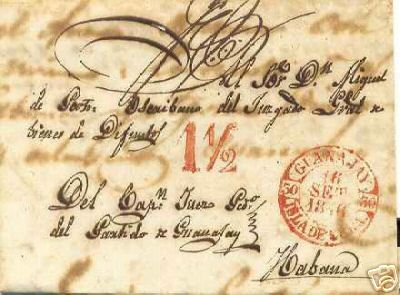 al Sor. Dn. Miguel
de Porto Escribano del Juzgado Gral de
bienes de Difuntos
1½
GUANAJAY
16
SET
ISLA DE CUBA
Del Capn. Juez Po
del Partido de Guanajay
Habana